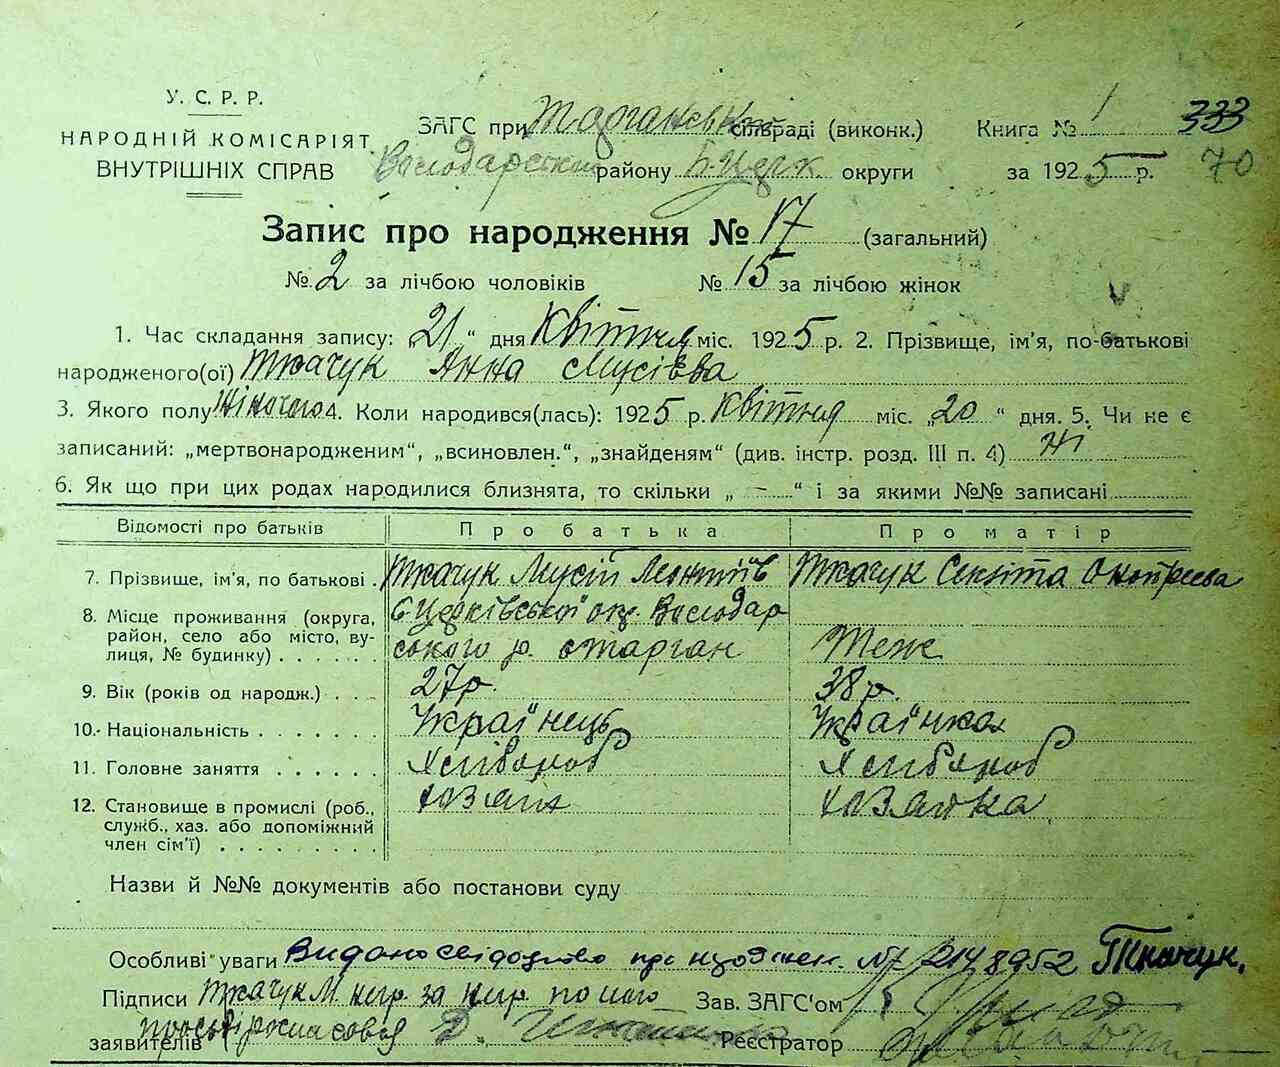 У. С. Р. Р.
НАРОДНІЙ КОМІСАРІЯТ
ВНУТРІШНІХ СПРАВ
ЗАГС при Тарганській сільраді (виконк.) Книга № 1 333
Володарського району Б. Церк. округи за 1925 р. 70
Запис про народження № 17 (загальний)
№ 2 за лічбою чоловіків № 15 за лічбою жінок
1. Час складання запису: 21 “ дня Квітня міс. 1925 р. 2. Прізвище, ім’я, по-батькові
народженого(ої) Ткачук Анна Мусієва
3. Якого полу Жіночого 4. Коли народився(лась): 1925 р. Квітня міс. „20“ дня. 5. Чи не є
записаний: „мертвонародженим“, „всиновлен.“, „знайденям“ (див. інстр. розд. III п. 4)
6. Як що при цих родах народилися близнята, то скільки „ — “ і за якими №№ записані
Відомості про батьків Про батька Про матір
7. Прізвище, ім’я, по батькові Ткачук Мусій Леонтіїв Ткачук
8. Місце проживання (округа, Б Церківської окр. Володар
район, село або місто, ву-
лиця, № будинку) ського р. с Тарган Теж
9. Вік (років од народж.) 27 р. 38 р.
10. Національність Українець Українка
11. Головне заняття Хлібороб Хлібороб
12. Становище в промислі (роб., хазяїн хазяйка
служб., хаз. або допоміжний
член сім’ї)
Назви й №№ документів або постанови суду
Особливі уваги Видано свідоцтво про народжен. Ткачук.
Підписи Ткачук М нигр. за нигр. по його Зав. ЗАГС’ом
заявителів просьбі росписовся Д. Реєстратор